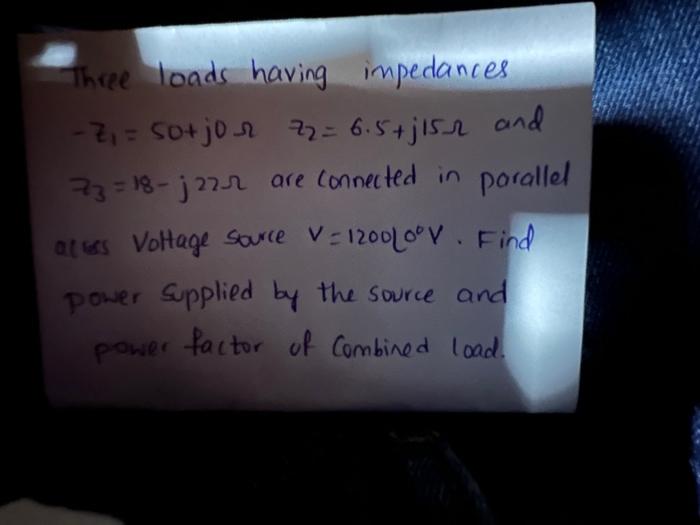 Three loads having impedances
- Z₁ = 50+j0 Ω Z₂ = 6.5+j15Ω and
Z₃ = 18-j22Ω are connected in parallel
across Voltage source V = 1200∠0° V. Find
power supplied by the source and
power factor of Combined load.